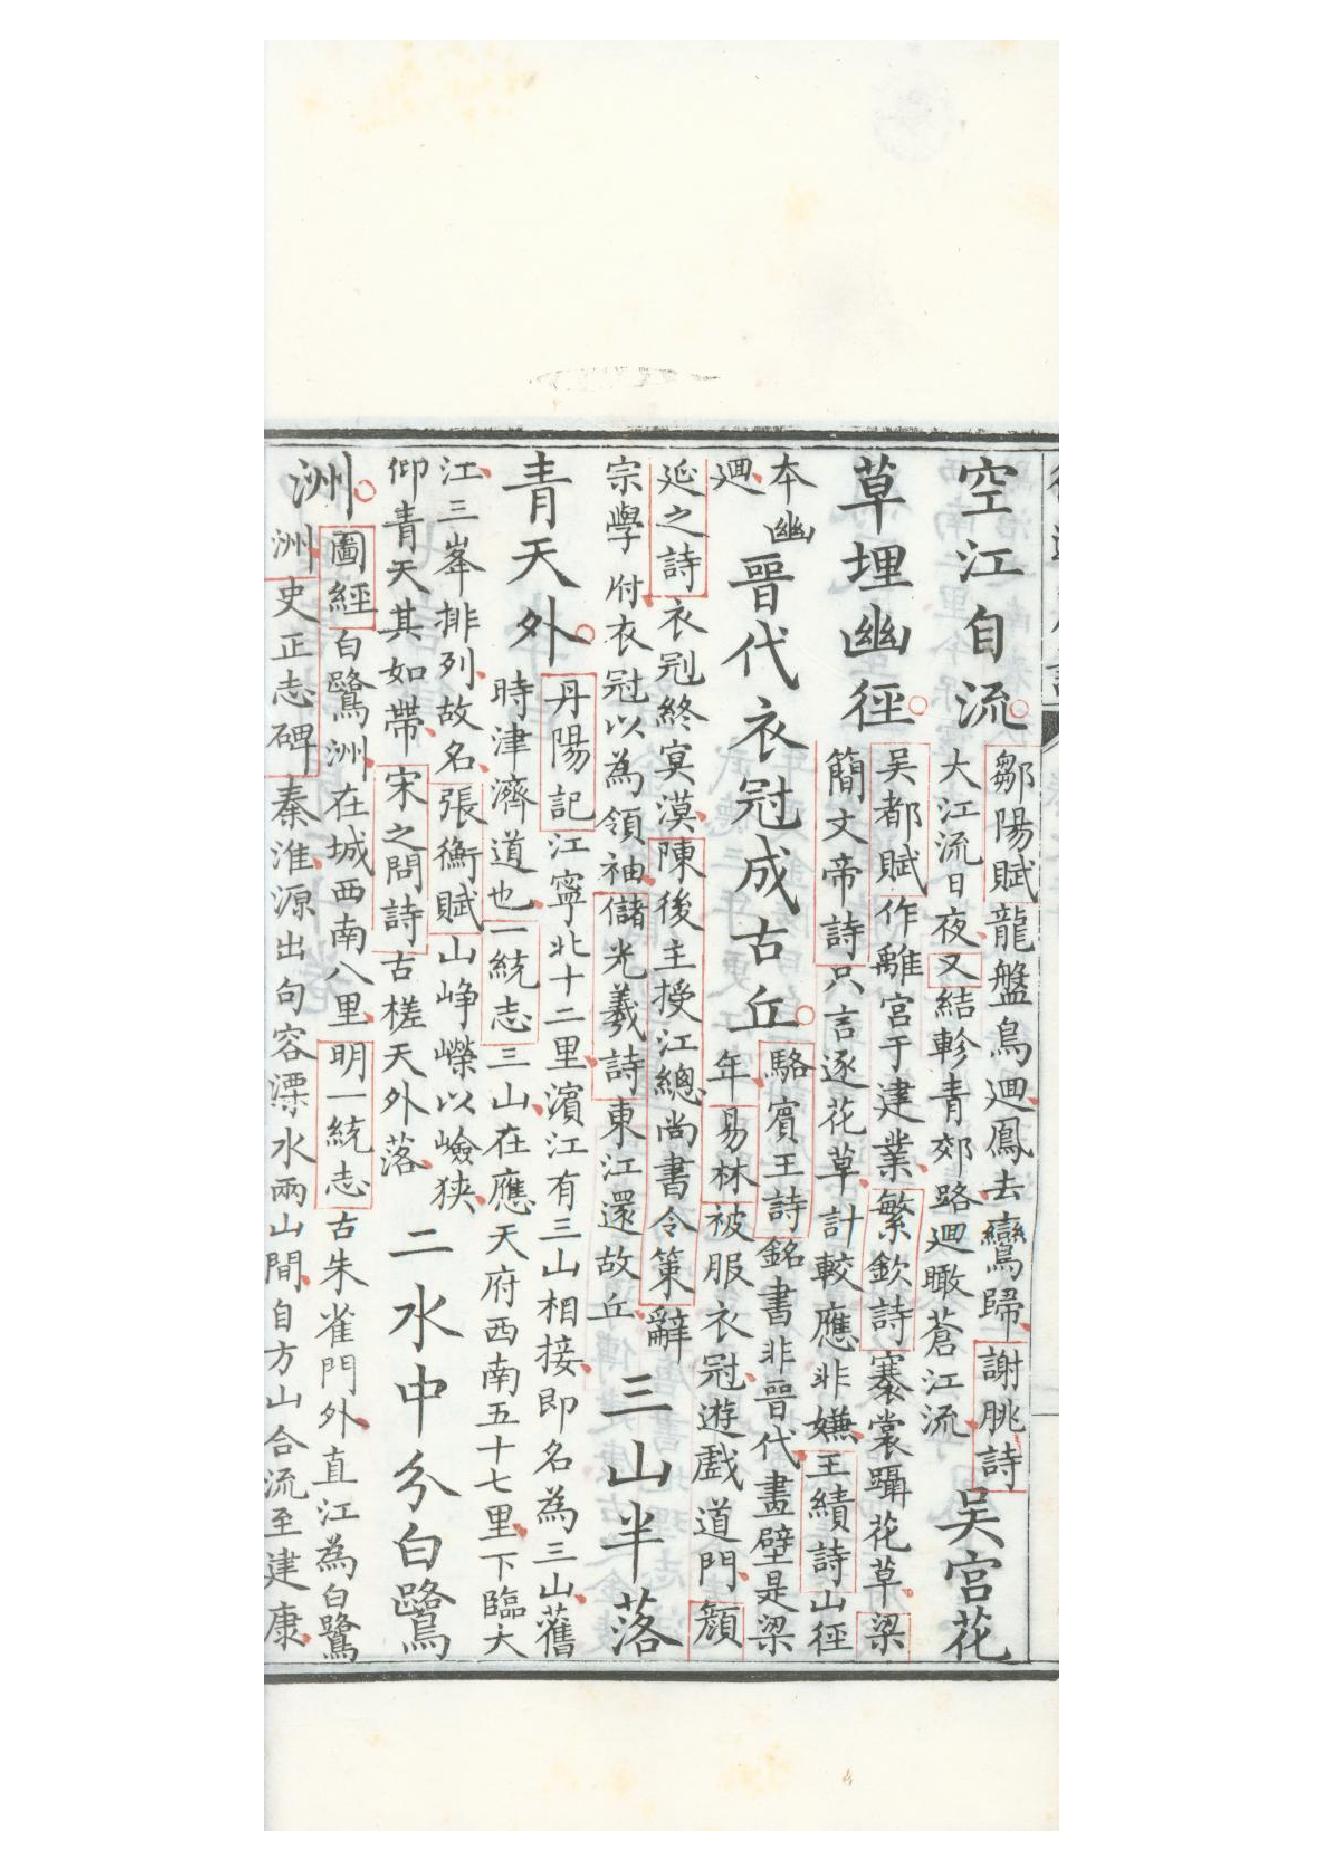 空江自流
鄒陽賦龍盤鳥迴鳳去鸞歸謝朓詩
大江流日夜又結軫青郊路迴瞰蒼江流
吳宮花
草埋幽徑
吳都賦作離宮于建業繁欽詩褰裳躡花草梁
簡文帝詩只言逐花草計較應非嫌王績詩山徑
本幽
迴
晉代衣冠成古丘
駱賓王詩銘書非晉代畫壁是梁
年易林被服衣冠遊戲道門顏
延之詩衣冠終寞漠陳後主授江總尚書令策辭
宗學府衣冠以為領袖儲光羲詩東江還故丘
三山半落
青天外
丹陽記江寧北十二里濱江有三山相接即名為三山舊
時津濟道也一統志三山在應天府西南五十七里下臨大
江三峯排列故名張衡賦山崢嶸以嶮狹
仰青天其如帶宋之問詩古槎天外落
二水中分白鷺
洲
圖經白鷺洲在城西南八里明一統志古朱雀門外直江為白鷺
洲史正志碑秦淮源出句容溧水兩山間自方山合流至建康